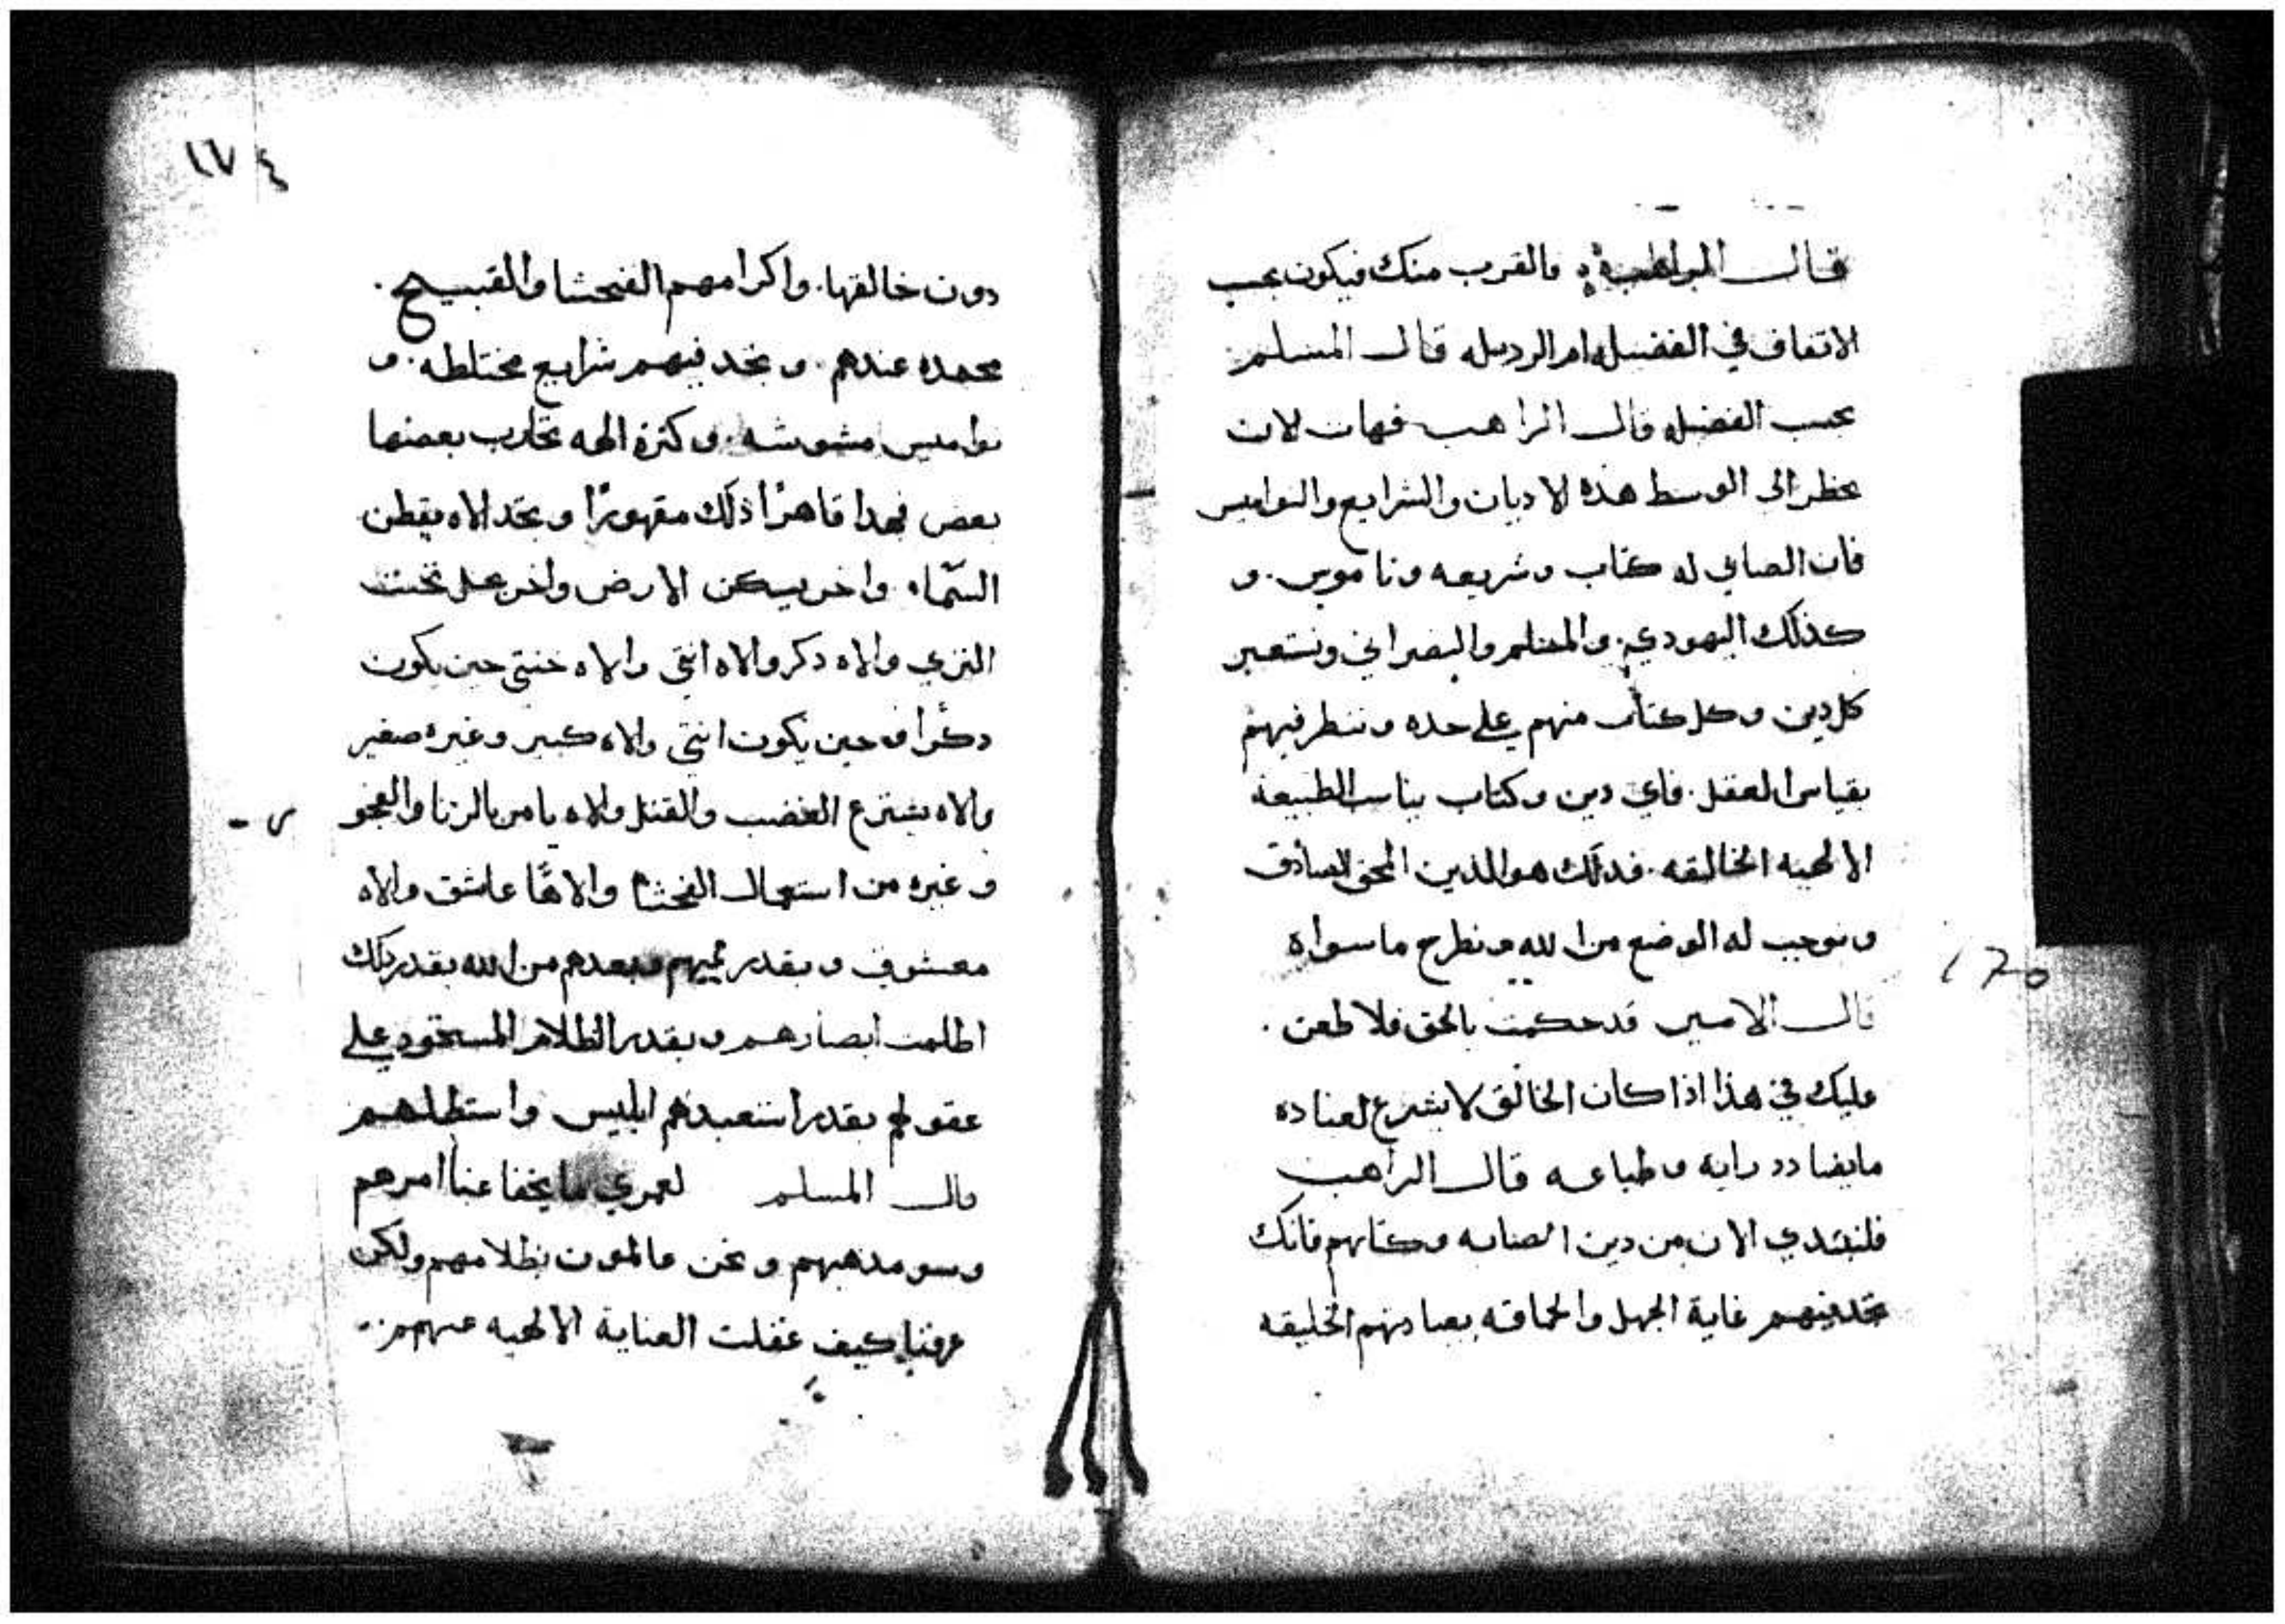 قال الراهب فالقرب منك فيكون بحسب
الاتفاق في الفضيله ام الرديله قال المسلم
بحسب الفضيله قال الراهب فهات لان
نحظر الى الوسط هذه الاديان والشرايع والنواميس
فان الصابي له كتاب وشريعه وناموس. و
كذلك اليهودي. والمسلم والنصراني ونستعبر
كل دين وكل كتاب منهم على حده وننظر فيهم
بقياس العقل. فاي دين وكتاب يناسب الطبيعة
الالهيه الخالقه. فدلك هو الدين الحق الصادق
ونوجب له الوضع من الله ونطرح ما سواه
قال الامير قد حكمت بالحق فلا طعن.
عليك في هذا اذا كان الخالق لا يشرع لعباده
ما يضادد رايه وطباعه قال الراهب
فلنبتدي الان من دين الصابه وكتابهم فانك
تجد فيهم غاية الجهل والحماقه بعبادتهم الخليقه
١٧٤
دون خالقها. واكرامهم الفحشا والقبيح.
محمده عندهم. وتجد فيهم شرايع مختلطه. و
نواميس مشوشه. وكثرة الهه تحارب بعضها
بعض فهدا قاهرًا ذلك مقهورًا وتجد الاه يقطن
السّماء واخر يسكن الارض واخر تحت
الثري والاه دكر والاه انثي والاه خنثي حين يكون
دكرًا وحين يكون انثي والاه كبير وغيره صغير
والاه يشترع الغضب والقتل والاه يامر بالزنا والفجو
ر -
وغيره من استعمال الفحشا والاهًا عاشق والاه
معشوق وبقدر غيهم وبعدهم من الله بقدر دلك
اظلمت ابصارهم وبقدر الظلام المستحود على
عقولهم بقدر استعبدهم ابليس واستظلهم
قال المسلم لعمري ما يخفا عنا امرهم
وسو مدهبهم ونحن عالمون بظلامهم ولكن
عرفنا كيف غفلت العناية الالهيه عنهم